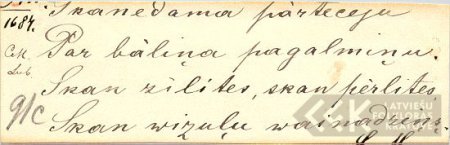 1684.
Skanēdama pārteceju
Par bāliņa pagalmiņu.
Skan zīlites, skan pērlites,
Skan wizuļu wainadziņi
9/c
LATVIEŠU
FOLKLORAS
KRĀTUVE